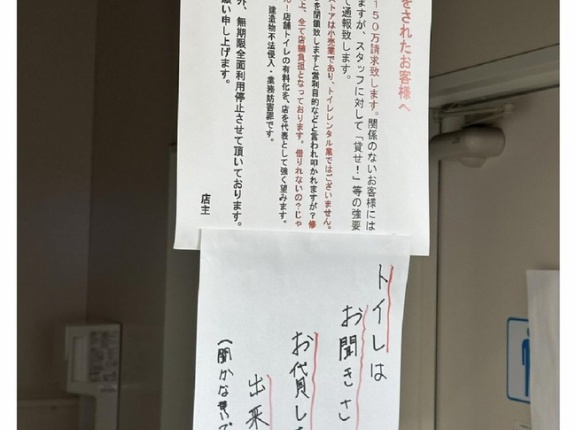 をされたお客様へ
150万請求致します。関係のないお客様には
ますが、スタッフに対して「貸せ！」等の強要
て通報致します。
ストアは小売業であり、トイレレンタル業ではございません。
を閉鎖致しますと営利目的などと言われ叩かれますが？修
上、全て店舗負担となっております。借りれないの？じゃ
ん！店舗トイレの有料化を、店を代表として強く望みます。
建造物不法侵入・業務妨害罪です。
外、無期限全面利用停止させて頂いております。
願い申し上げます。
店主
トイレは
お聞きさ
お貸し
出来
（聞かないで